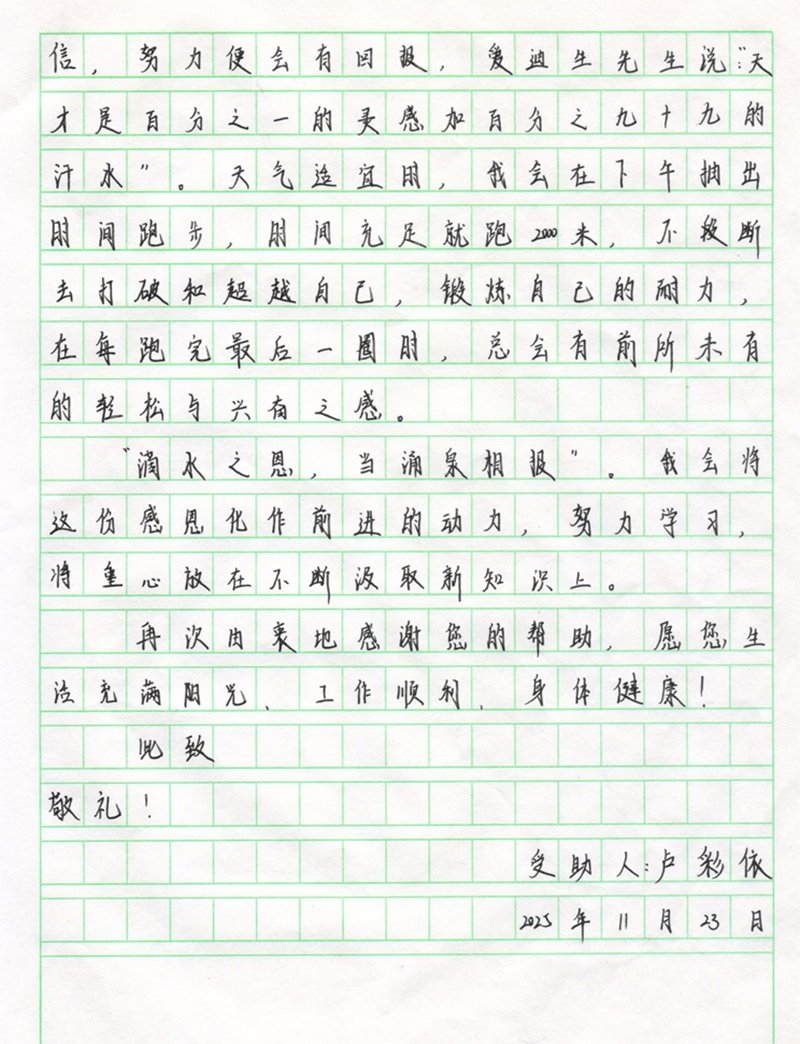 信，努力便会有回报，爱迪生先生说："天
才是百分之一的灵感加百分之九十九的
汗水"。天气适宜时，我会在下午抽出
时间跑步，时间充足就跑2000米，不段断
去打破和超越自己，锻炼自己的耐力，
在每跑完最后一圈时，总会有前所未有
的轻松与兴奋之感。
"滴水之恩，当涌泉相报"。我会将
这份感恩化作前进的动力，努力学习，
将重心放在不断汲取新知识上。
再次由衷地感谢您的帮助，愿您生
活充满阳光、工作顺利、身体健康！
此致
敬礼！
受助人：卢彩依
2025年11月23日